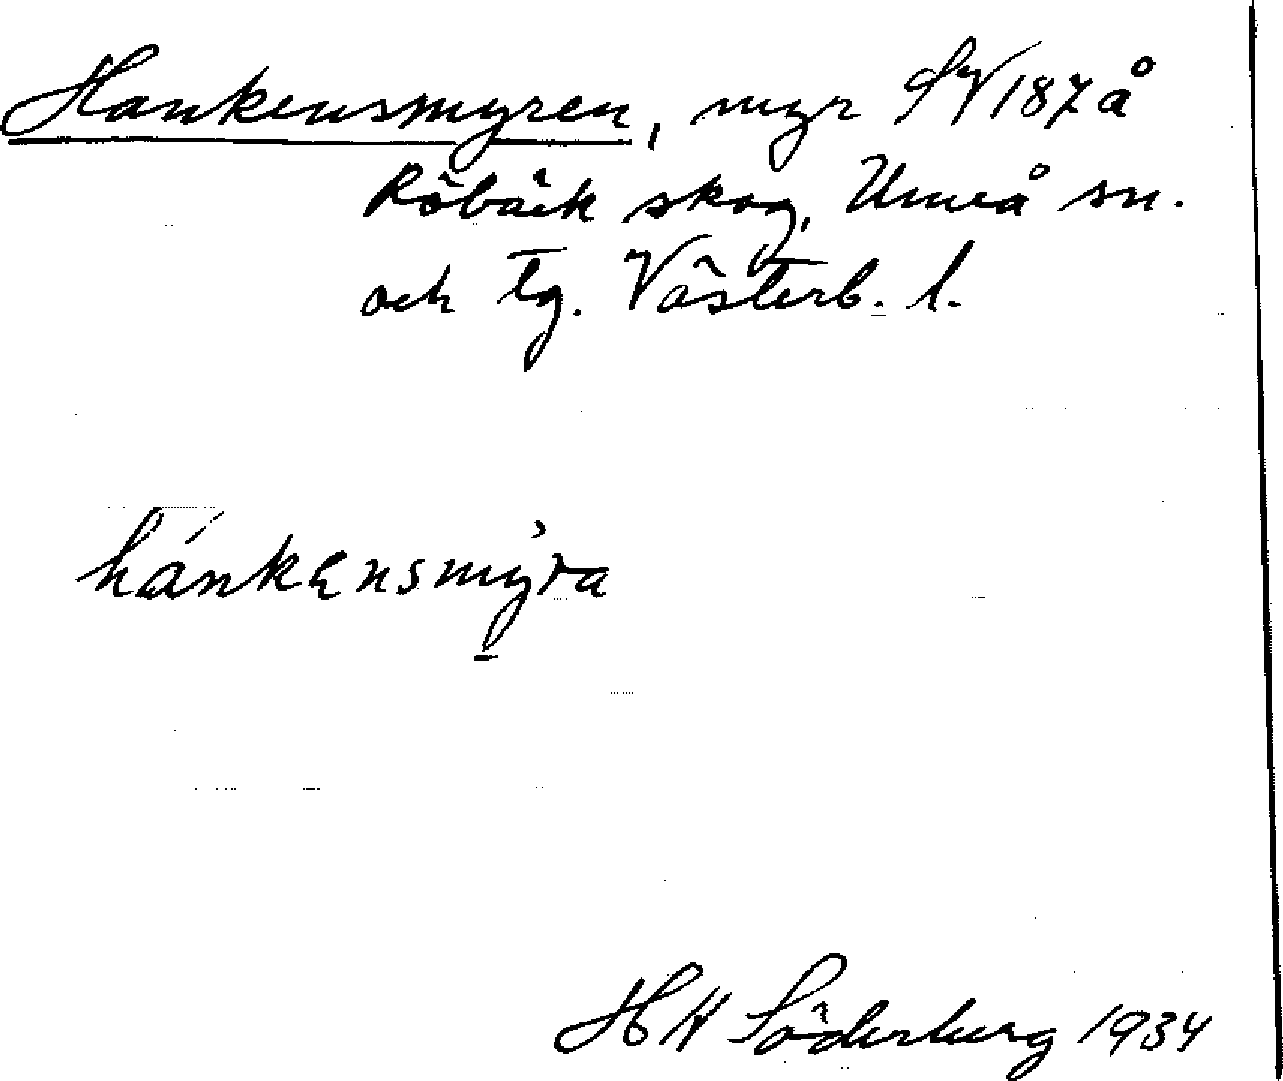 Hankensmyren, myr SV 187 å
Röbäck skog, Umeå sn.
och tg. Västerb. l.
hánkensmỳra
H H Söderberg 1934